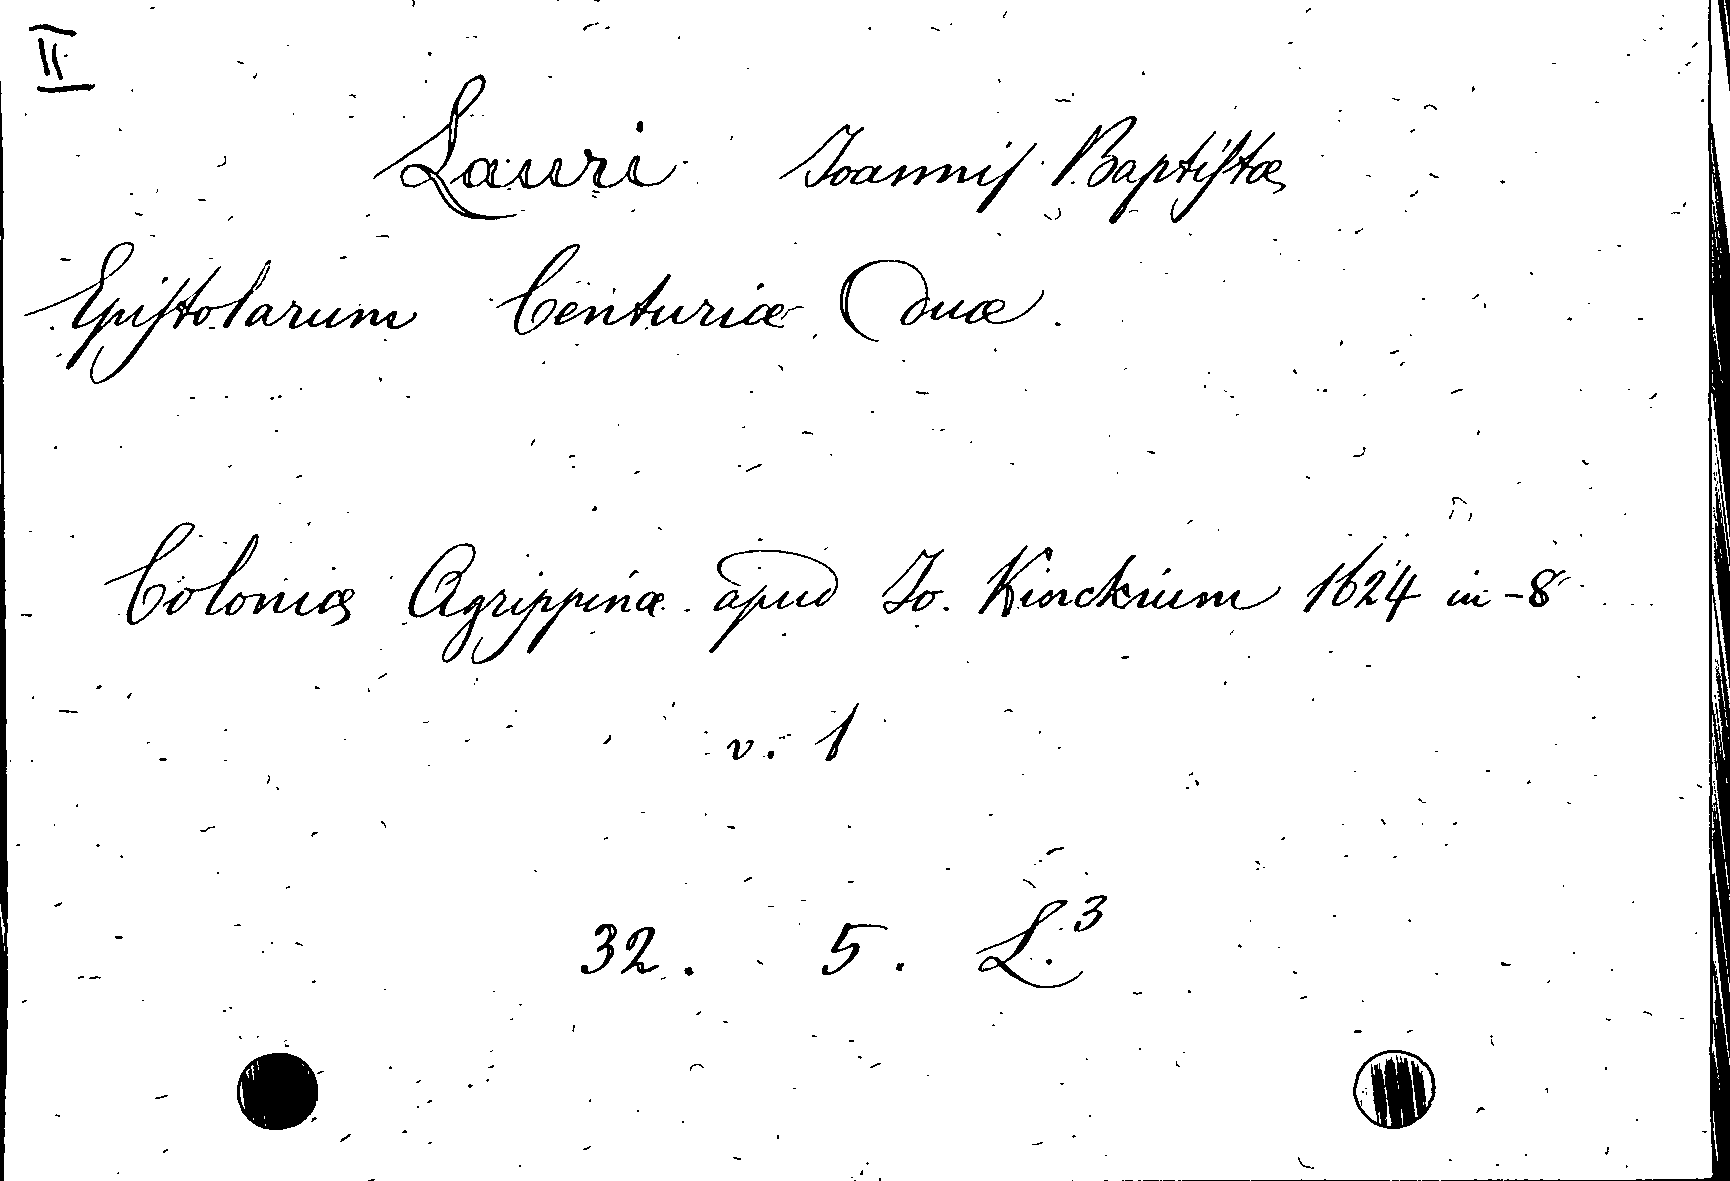 II
Lauri Joannis Baptistæ
Epistolarum Centuriæ duæ.
Coloniæ Agrippinæ apud Jo. Kinckium 1624 in-8
v. 1
32. 5. L.3